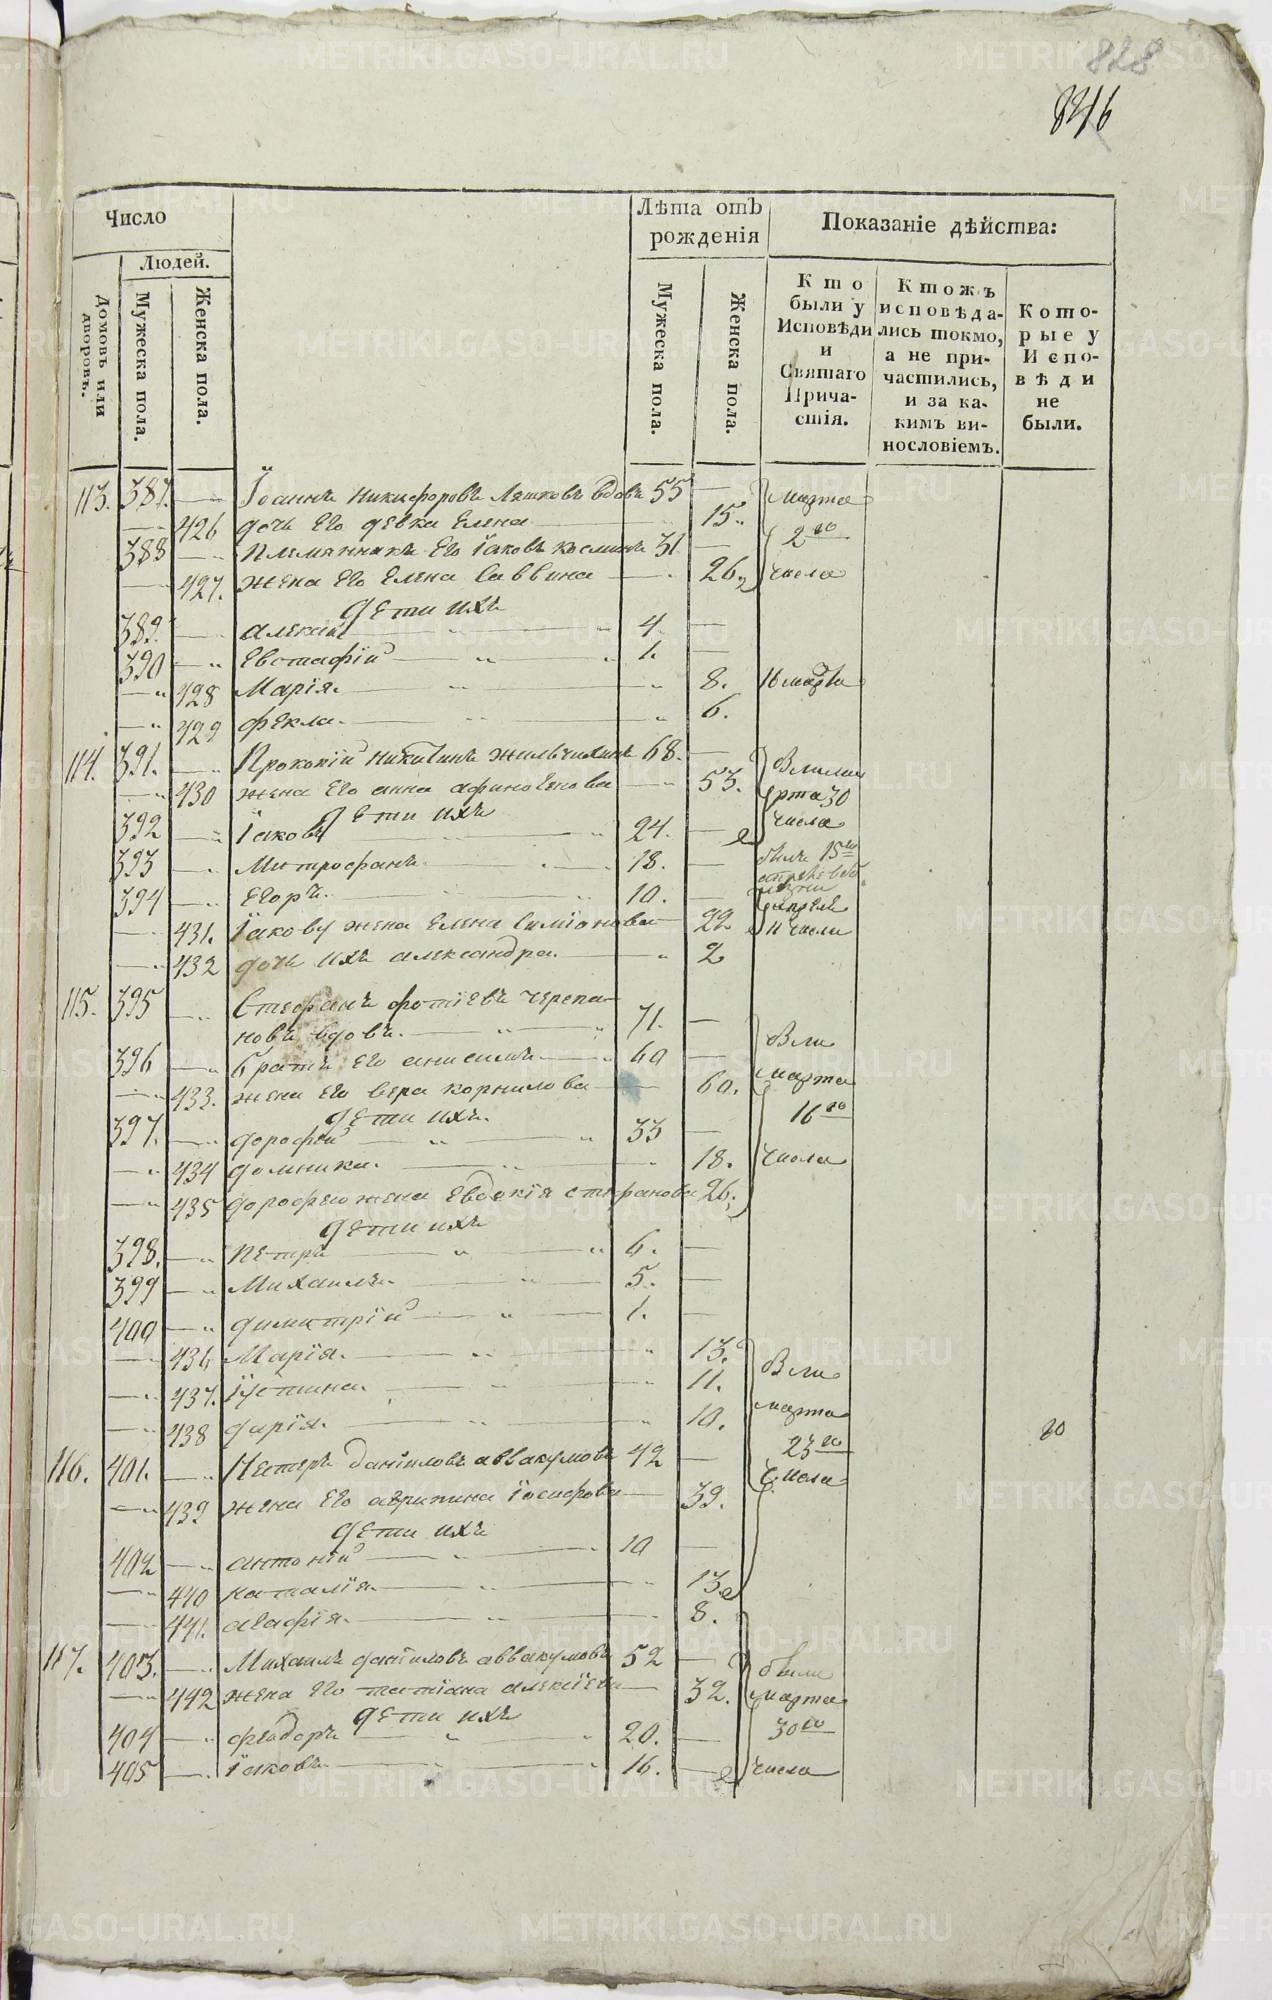 828
846
Число
Лѣта отъ рожденія
Показаніе дѣйства:
Людей.
Домовъ или дворовъ.
Мужеска пола.
Женска пола.
Мужеска пола.
Женска пола.
Кто были у Исповѣди и Святаго Причастія.
Ктожъ исповѣдались токмо, а не причастились, и за какимъ винословіемъ.
Которые у Исповѣди не были.
113. 387. Іоаннъ Никифоровъ Ляшковъ вдовъ 55 марта
426 дочь Его девка Елена 15. 2го
388 племянникъ Его Іаковъ Косминъ 31
427. жена Его Елена Саввина 26 числа
дети ихъ
389. алексий 4.
390 Евстафій 1.
428 Марія. 8. 16 марта
429 фекла. 6.
114. 391. Прокопій Никитинъ 68.
430 жена Его анна 53. рта 30
дети ихъ числа
392 Іаковъ 24.
393 Митрофанъ 18. были 15го
394 Егоръ. 10. апреля
431. Іакову жена Елена Симіонова 22 11 числа
432 дочь ихъ александра. 2
115. 395 Стефанъ фотіевъ черепа-
новъ вдовъ. 71.
396 братъ Его анисимъ 60
433. жена Его вера корнилова 60. марта
дети ихъ. 16го
397. дорофей 33
434 домника. 18. числа
435 дорофею жена Евдокія стефанова 26.
дети ихъ
398. петръ 6.
399 Михаилъ 5.
400 димитрій 1.
436 Марія. 13.
437. Іустина. 11. марта
438 дарія. 10.
23го
116. 401. Петеръ даніловъ аввакумовъ 42 числа
439 жена Его агрипина Іосифова 39.
дети ихъ
402 антоній 10
440 наталія. 13.
441. агафія. 8.
117. 403. Михаилъ даніловъ аввакумовъ 52 были
442 жена Его татіана алексіева 32. марта
дети ихъ 30го
404 феодоръ 20.
405 Іаковъ 16. числа
METRIKI.GASO-URAL.RU